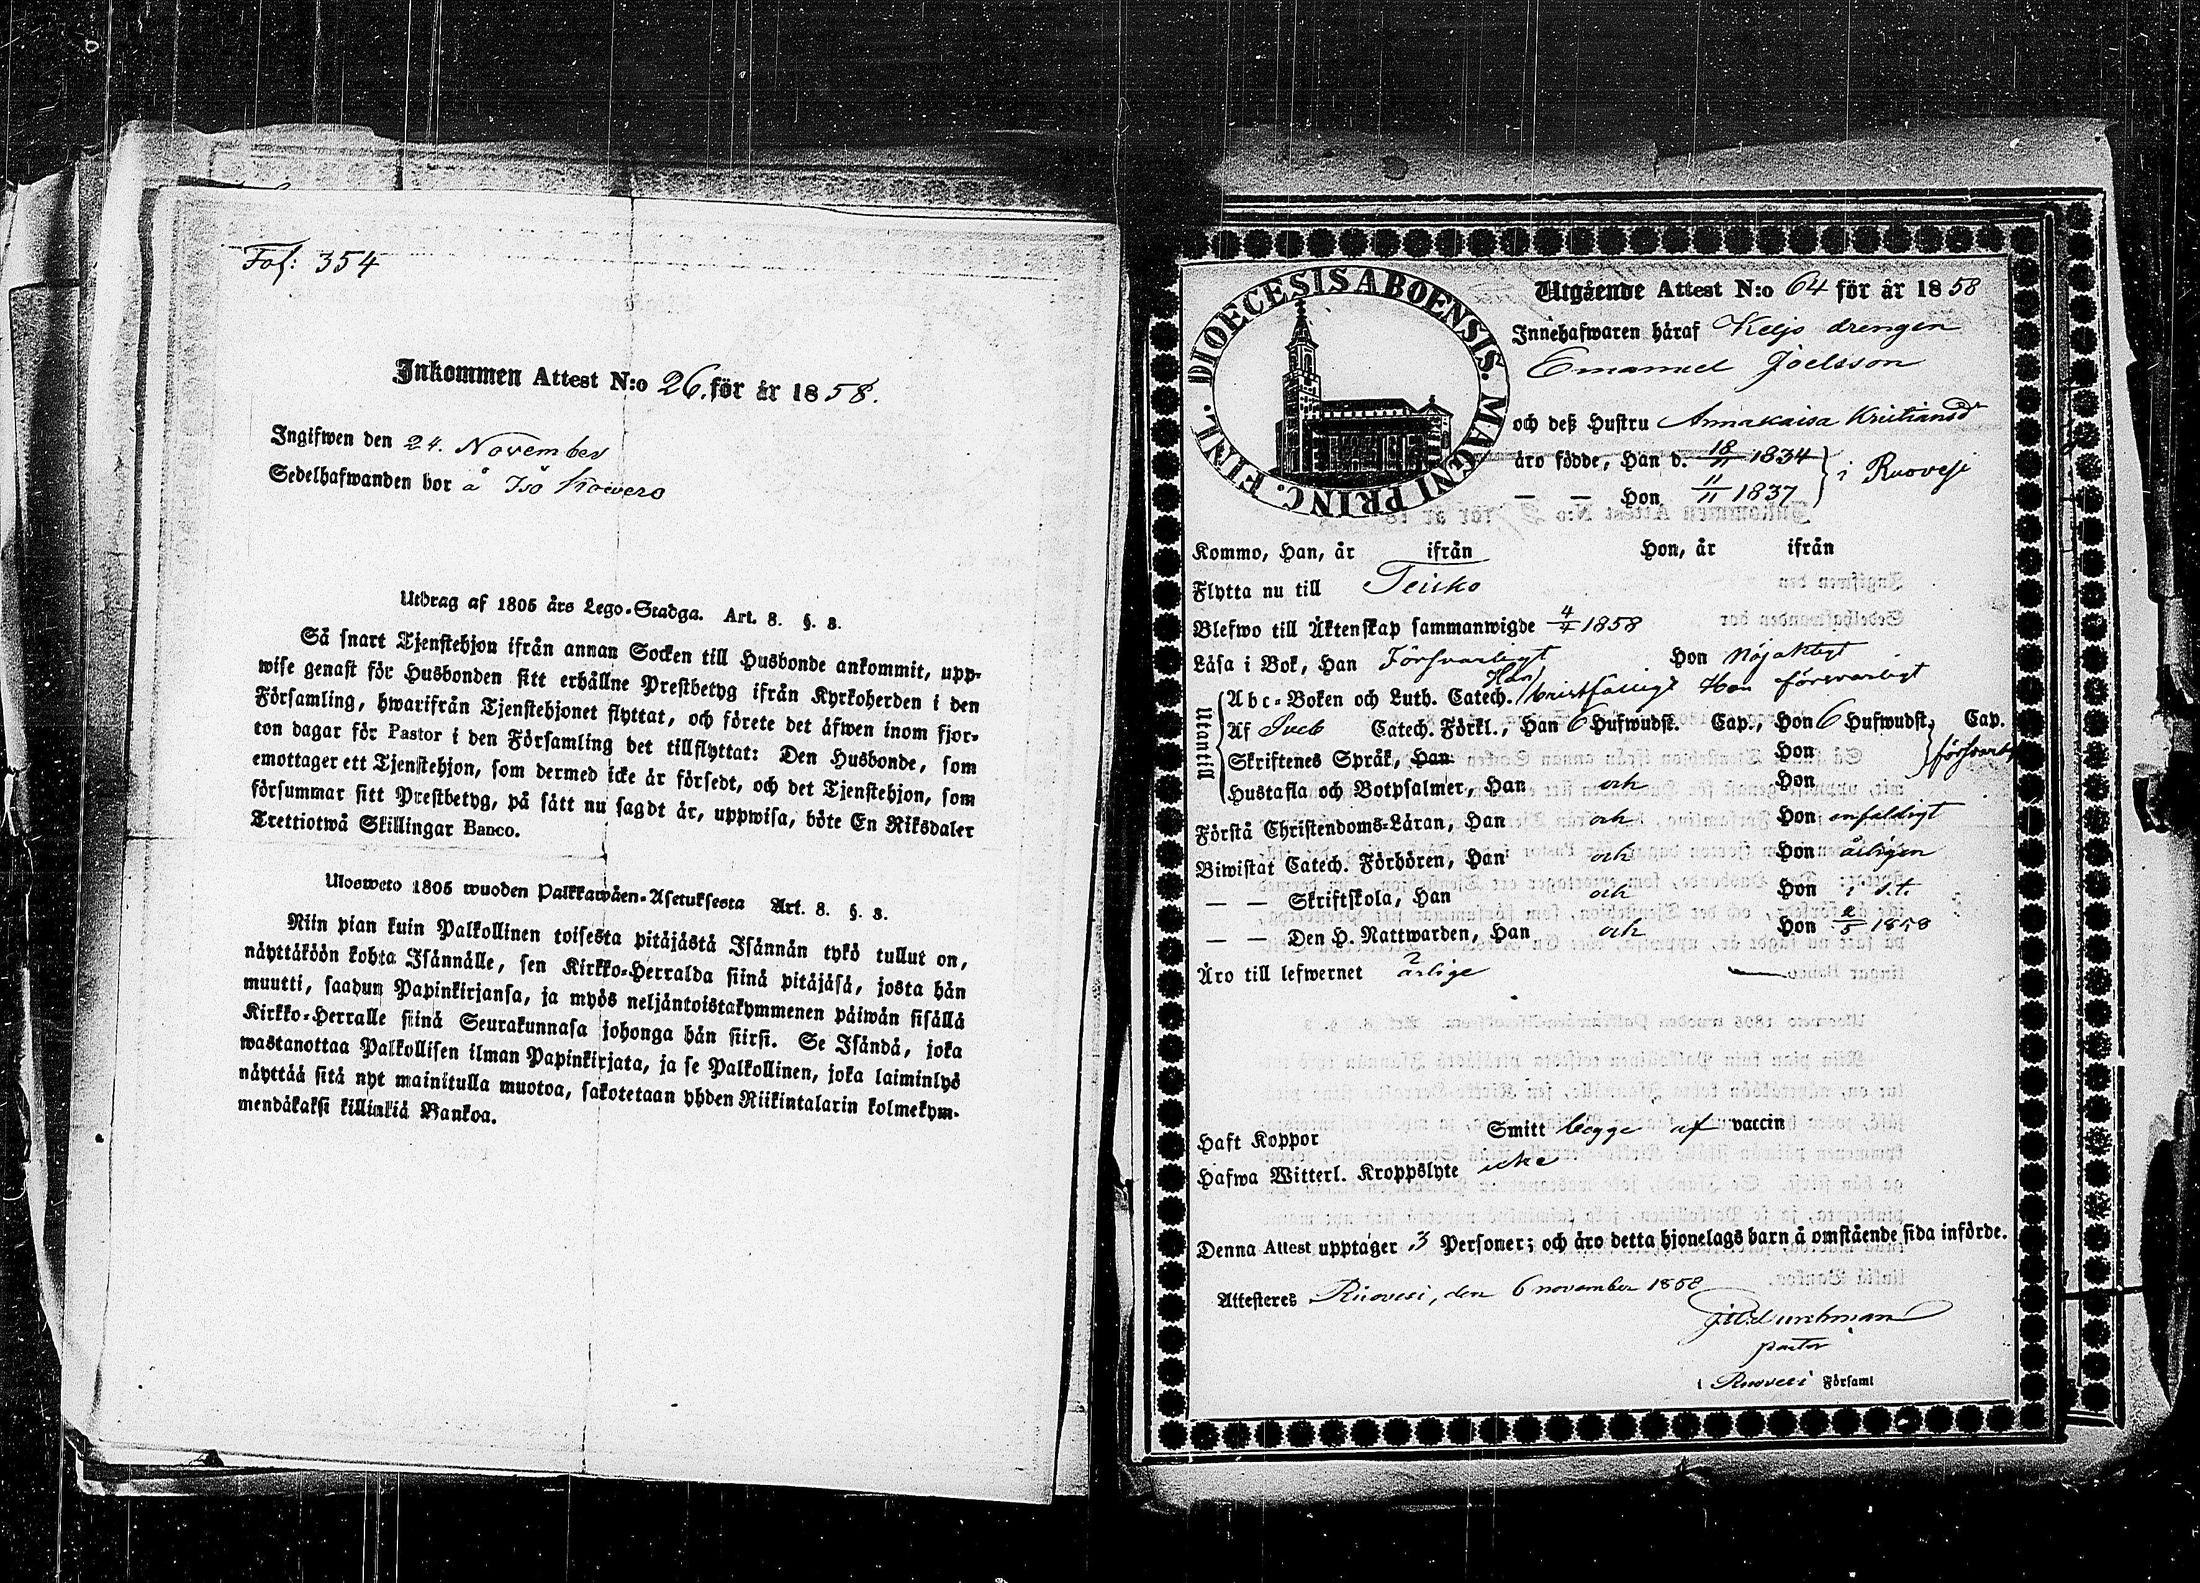 Fol: 354
Inkommen Attest N:o 26. för år 1858.
Ingifwen den 24. November
Sedelhafwanden bor å Iso
Utdrag af 1805 års Lego-Stadga. Art. 8. §. 8.
Så snart Tjenstehjon ifrån annan Socken till Husbonde ankommit, upp-
wise genast för Husbonden sitt erhållne Prestbetyg ifrån Kyrkoherden i den
Församling, hwarifrån Tjenstehjonet flyttat, och förete det äfwen inom fjor-
ton dagar för Pastor i den Församling det tillflyttat: Den Husbonde, som
emottager ett Tjenstehjon, som dermed icke är försedt, och det Tjenstehjon, som
försummar sitt Prestbetyg, på sätt nu sagdt är, uppwisa, böte En Riksdaler
Trettiotwå Skillingar Banco.
Ulosweto 1805 wuoden Palkkawäen-Asetuksesta Art. 8. §. 8.
Niin pian kuin Palkollinen toisesta pitäjästä Isännän tykö tullut on,
näyttäköön kohta Isännälle, sen Kirkko-Herralda siinä pitäjäsä, josta hän
muutti, saadun Papinkirjansa, ja myös neljäntoistakymmenen päiwän sisällä
Kirkko-Herralle siinä Seurakunnasa johonga hän siirsi. Se Isändä, joka
wastanottaa Palkollisen ilman Papinkirjata, ja se Palkollinen, joka laiminlyö
näyttää sitä nyt mainitulla muotoa, sakotetaan yhden Riikintalarin kolmekym-
mendäkaksi killinkiä Bankoa.
DIOECESIS ABOENSIS. MAGNI PRINC. FINL.
Utgående Attest N:o 64 för år 1858
Innehafwaren häraf Keijo drengen
Emanuel Joelsson
och deß Hustru Annakaisa Kristiansd
äro födde, Han d. 18/11 1834 } i Ruovesi
— — Hon 11/11 1837
Kommo, Han, år ifrån Hon, år ifrån
Flytta nu till Teisko
Blefwo till Äktenskap sammanwigde 4/4 1858
Läsa i Bok, Han Försvarligt Hon Nöjaktigt
Utantill
Abc-Boken och Luth. Catech. Han bristfälligt Hon försvarligt
Af Sveb Catech. Förkl., Han 6 Hufwudst. Cap., Hon 6 Hufwudst. Cap.
Skriftenes Språk, Han Hon } försvarl
Hustafla och Botpsalmer, Han och Hon
Förstå Christendoms-Läran, Han och Hon enfaldigt
Biwistat Catech. Förhören, Han och Hon årligen
— — Skriftskola, Han och Hon i s.t.
— — Den H. Nattwarden, Han och Hon 2/5 1858
Äro till lefwernet ärlige
Haft Koppor Smitt begge af vaccin
Hafwa Witterl. Kroppslyte icke
Denna Attest upptager 3 Personer; och äro detta hjonelags barn å omstående sida införde.
Attesteres Ruovesi, den 6 november 1858
pastor
i Ruovesi Församl